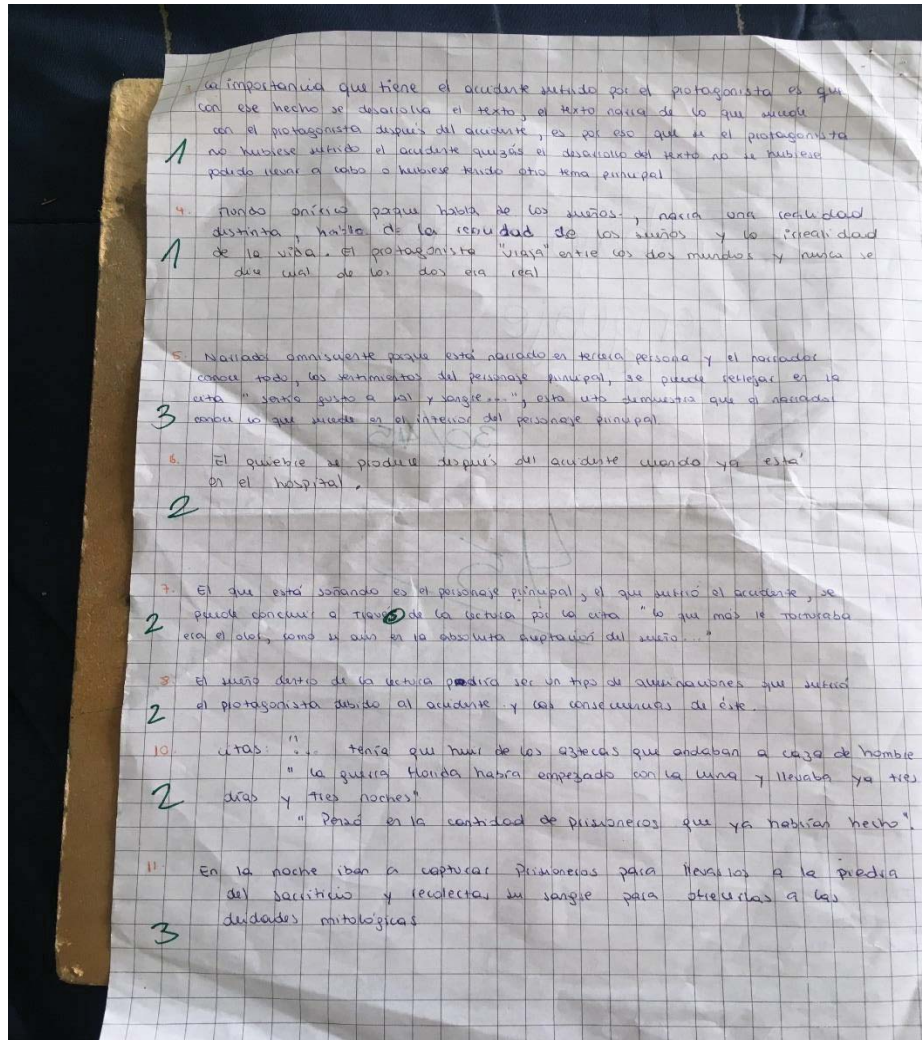 La importancia que tiene el accidente sufrido por el protagonista es que
con ese hecho se desarrolla el texto, el texto narra de lo que sucede
con el protagonista después del accidente, es por eso que si el protagonista
no hubiese sufrido el accidente quizás el desarrollo del texto no se hubiese
podido llevar a cabo o hubiese tenido otro tema principal
1
4. Mundo onírico porque habla de los sueños, narra una realidad
distinta, habla de la realidad de los sueños y lo irrealidad
de la vida. El protagonista "viaja" entre los dos mundos y nunca se
dice cual de los dos era real
1
5. Narrador omnisciente porque está narrado en tercera persona y el narrador
conoce todo, los sentimientos del personaje principal, se puede reflejar en la
cita "sentía gusto a sal y sangre...", esta cita demuestra que el narrador
conoce lo que sucede en el interior del personaje principal.
3
6. El quiebre se produce después del accidente cuando ya está
en el hospital.
2
7. El que está soñando es el personaje principal, el que sufrió el accidente, se
puede concluir a través de la lectura por la cita "lo que más le torturaba
era el olor, como si aún en la absoluta aceptación del sueño..."
2
8. El sueño dentro de la lectura podría ser un tipo de que sufrió
el protagonista debido al accidente y las consecuencias de éste.
2
10. citas: "... tenía que huir de los aztecas que andaban a caza de hombre
"La guerra florida había empezado con la luna y llevaba ya tres
días y tres noches"
"Pensó en la cantidad de prisioneros que ya habrían hecho"
2
11. En la noche iban a capturar Prisioneros para llevarlos a la piedra
del sacrificio y recolectar su sangre para ofrecerlas a las
deidades mitológicas
3